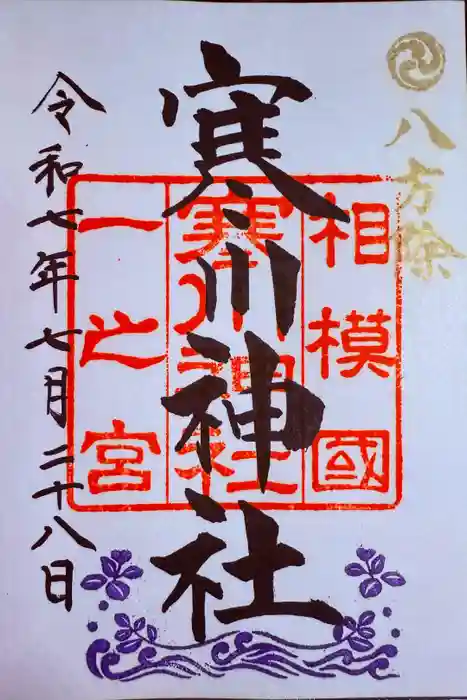 八方除
相模國
寒川神社
一之宮
寒川神社
令和七年七月二十八日